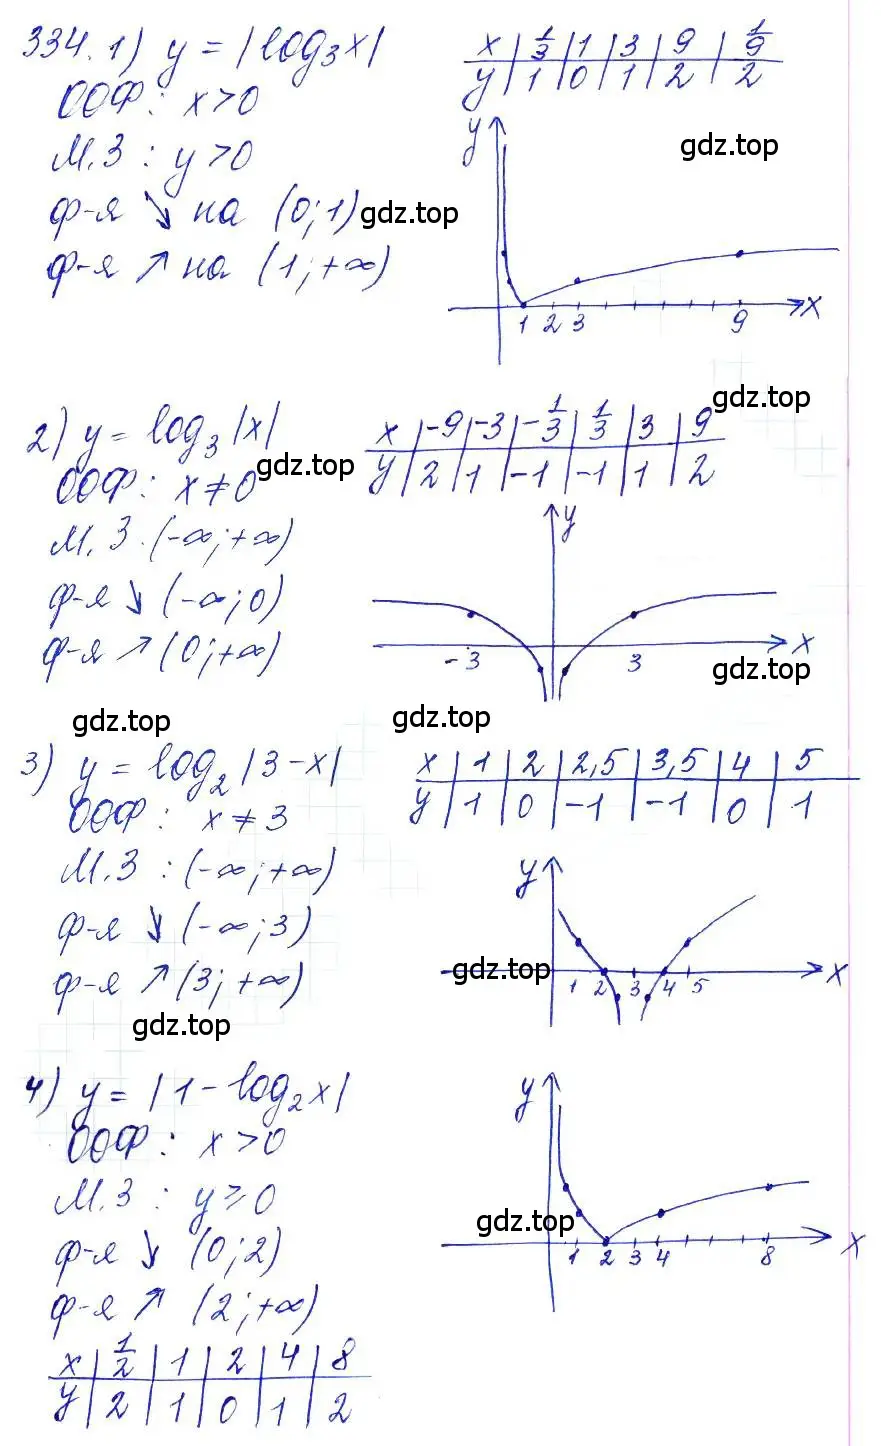 334. 1) y = |log₃x|
x | 1/3 | 1 | 3 | 9 | 1/9
y | 1 | 0 | 1 | 2 | 2
ООФ: x > 0
М.З : y > 0
gdz.top
ф-я ↘ на (0; 1)
gdz.top
ф-я ↗ на (1; +∞)
y
1 2 3 9 x
gdz.top
2) y = log₃|x|
x | -9 | -3 | -1/3 | 1/3 | 3 | 9
y | 2 | 1 | -1 | -1 | 1 | 2
gdz.top
ООФ: x ≠ 0
М.З. (-∞; +∞)
ф-я ↘ (-∞; 0)
ф-я ↗ (0; +∞)
y
-3 3 x
gdz.top
gdz.top
gdz.top
3) y = log₂|3-x|
x | 1 | 2 | 2,5 | 3,5 | 4 | 5
y | 1 | 0 | -1 | -1 | 0 | 1
ООФ: x ≠ 3
М.З : (-∞; +∞)
ф-я ↘ (-∞; 3)
ф-я ↗ (3; +∞)
y
gdz.top
1 2 3 4 5 x
gdz.top
4) y = |1 - log₂x|
ООФ: x > 0
М.З : y ≥ 0
ф-я ↘ (0; 2)
ф-я ↗ (2; +∞)
y
gdz.top
1 2 3 4 8 x
x | 1/2 | 1 | 2 | 4 | 8
y | 2 | 1 | 0 | 1 | 2